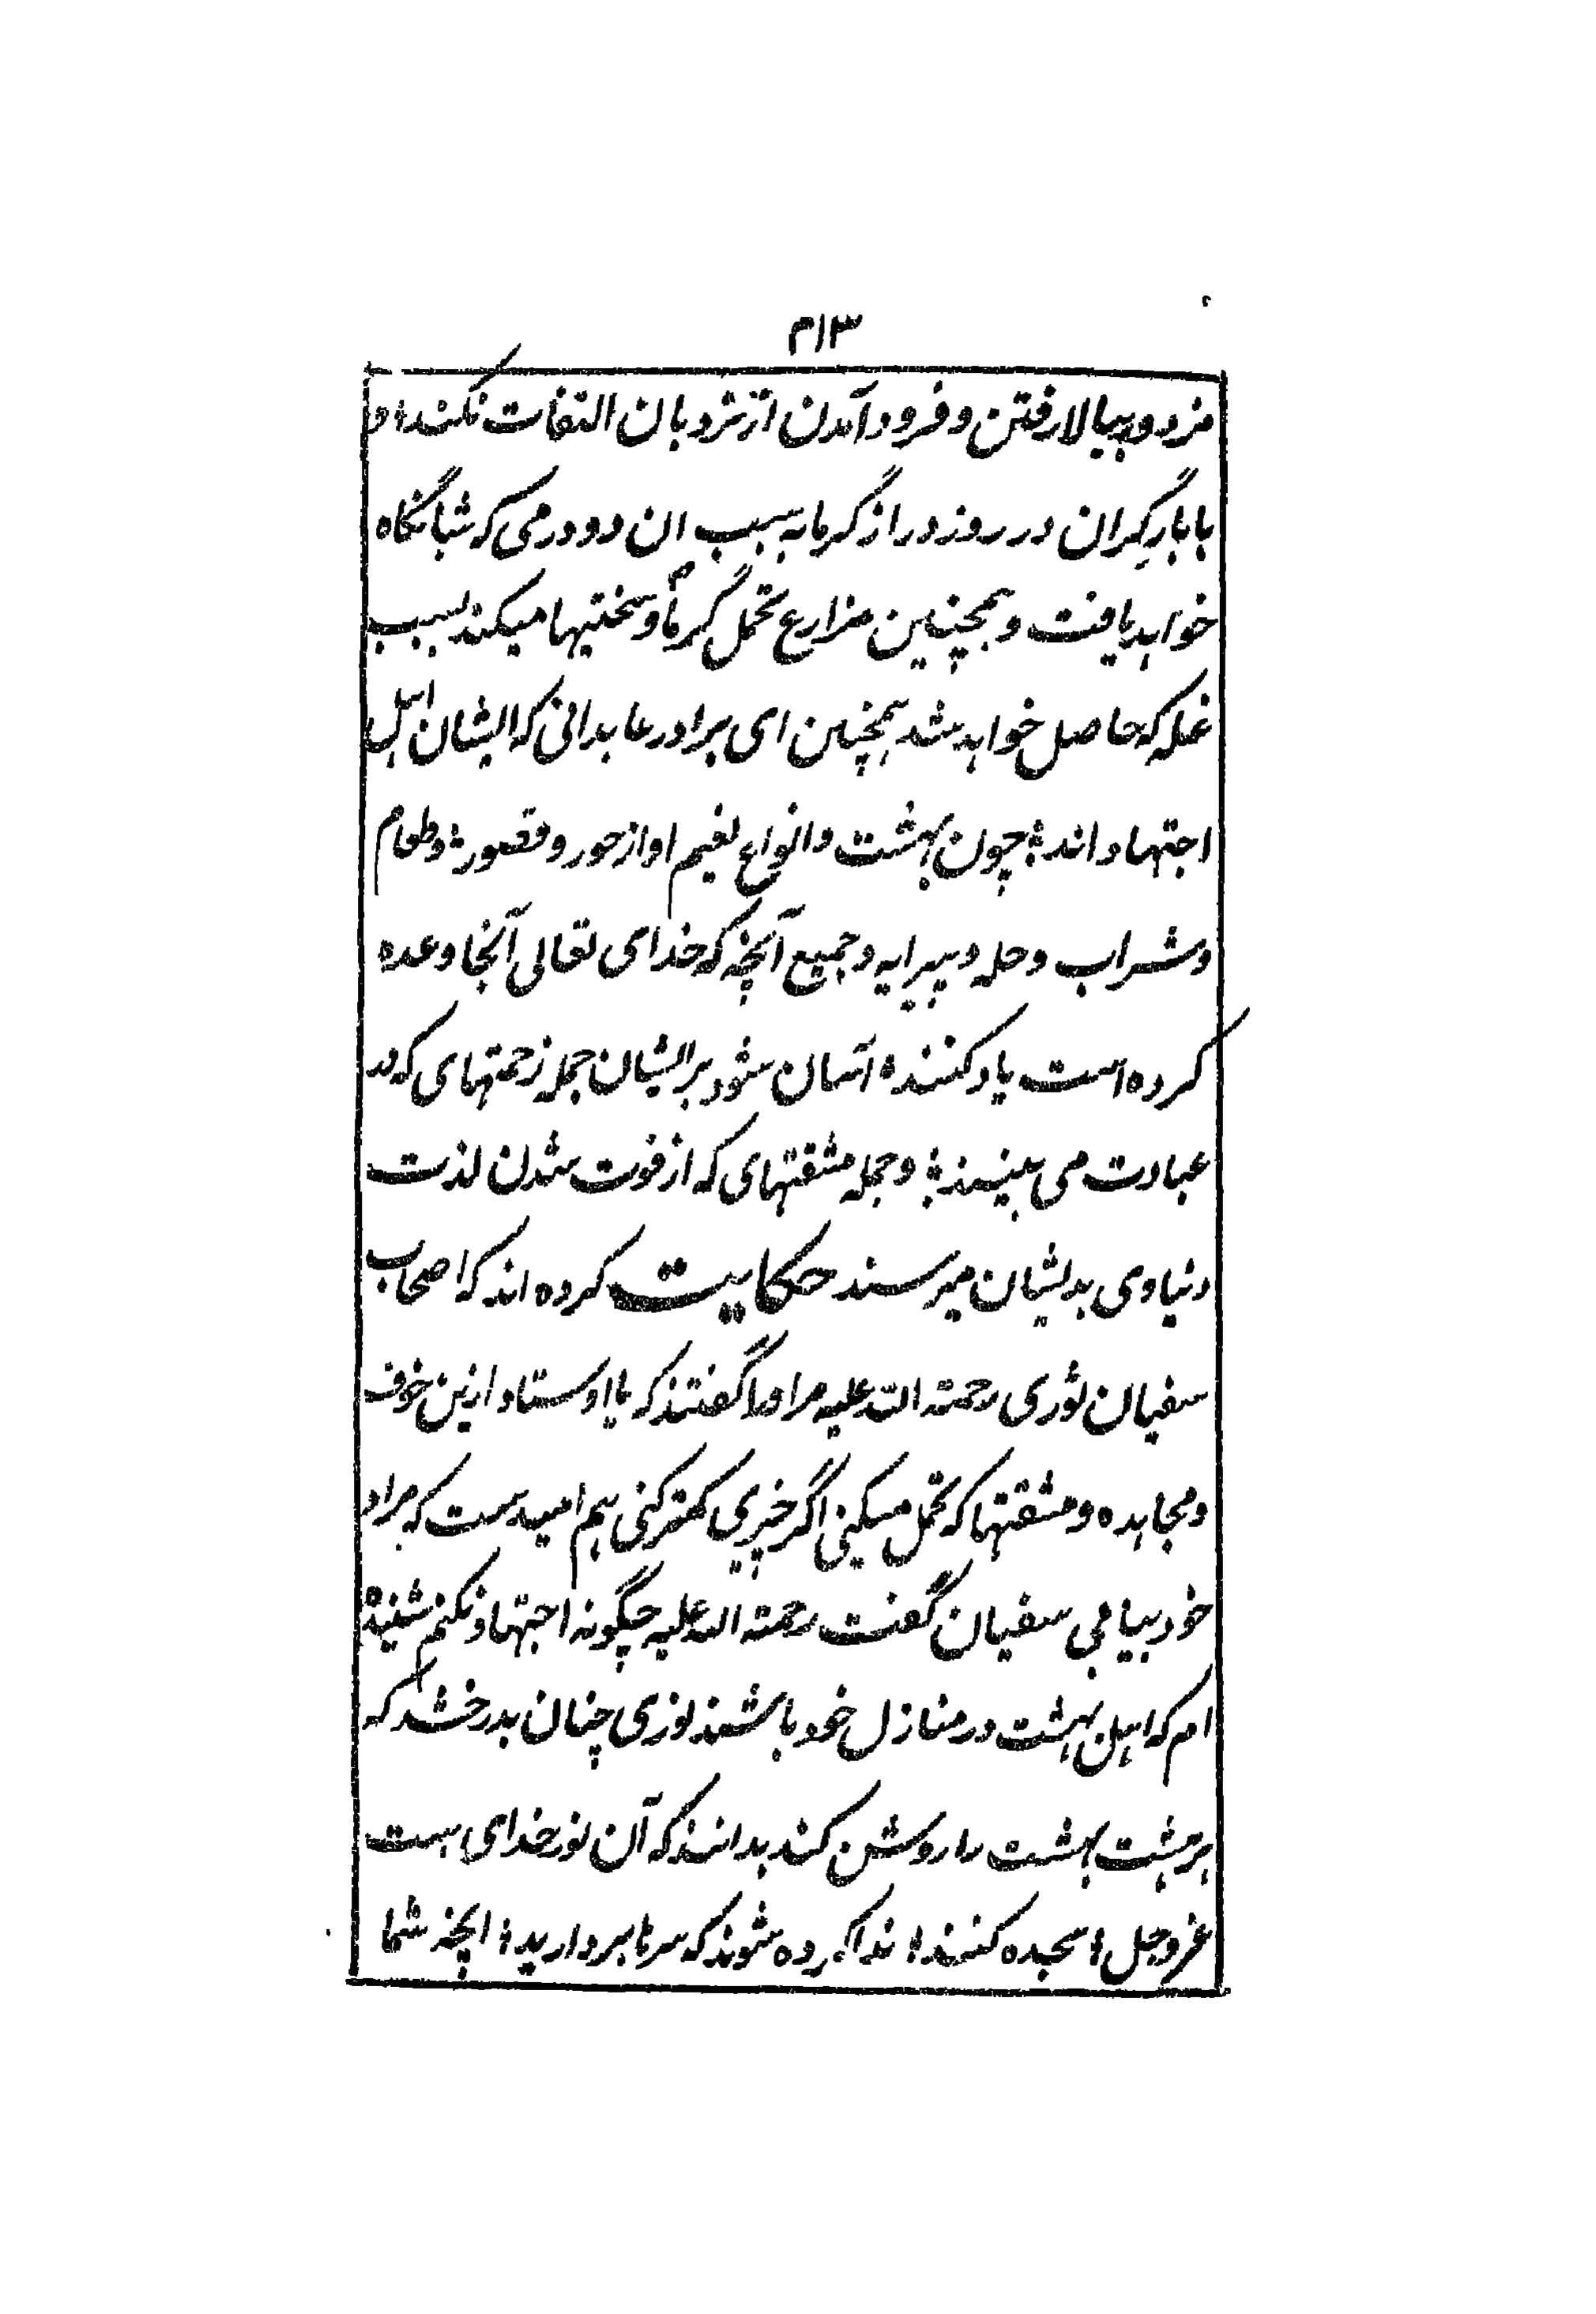 ۴۱۳
مزدور ببالا رفتن و فرود آمدن از نردبان التفات نکند؛ و
با بارگران در روز دراز گرما به سبب ان دو درمی که شبانگاه
خواهد یافت و همچنین مزارع تحمل گرما و سختیها میکند بسبب
غله که حاصل خواهد شد همچنین ای برادر عابدانی که ایشان اهل
اجتهاد اند؛ چون بهشت و انواع نعیم او از حور و قصور؛ و طعام
و شراب و حله و پیرایه و جمیع آنچه که خدای تعالی آنجا وعده
کرده است یاد کنند؛ آسان شود بر ایشان جمله زحمتهای که در
عبادت می بینند؛ و جمله مشقتهای که از فوت شدن لذت
دنیاوی بدیشان میرسند حکایت کرده اند که اصحاب
سفیان ثوری رحمته الله علیه مر اورا گفتند که یا اوستاد ازین خوف
و مجاهده و مشقتها که تحمل میکنی اگر چیزی کمتر کنی هم امیدست که مراد
خود بیابی سفیان گفت رحمته الله علیه چگونه اجتهاد نکنم شنیده
ام که اهل بهشت در منازل خود باشند نوری چنان بدرخشد که
هر هشت بهشت را روشن کند بدانند که آن نور خدای است
عزوجل؛ سجده کنند؛ ندا کرده شوند که سرها بردارید؛ انچه شما